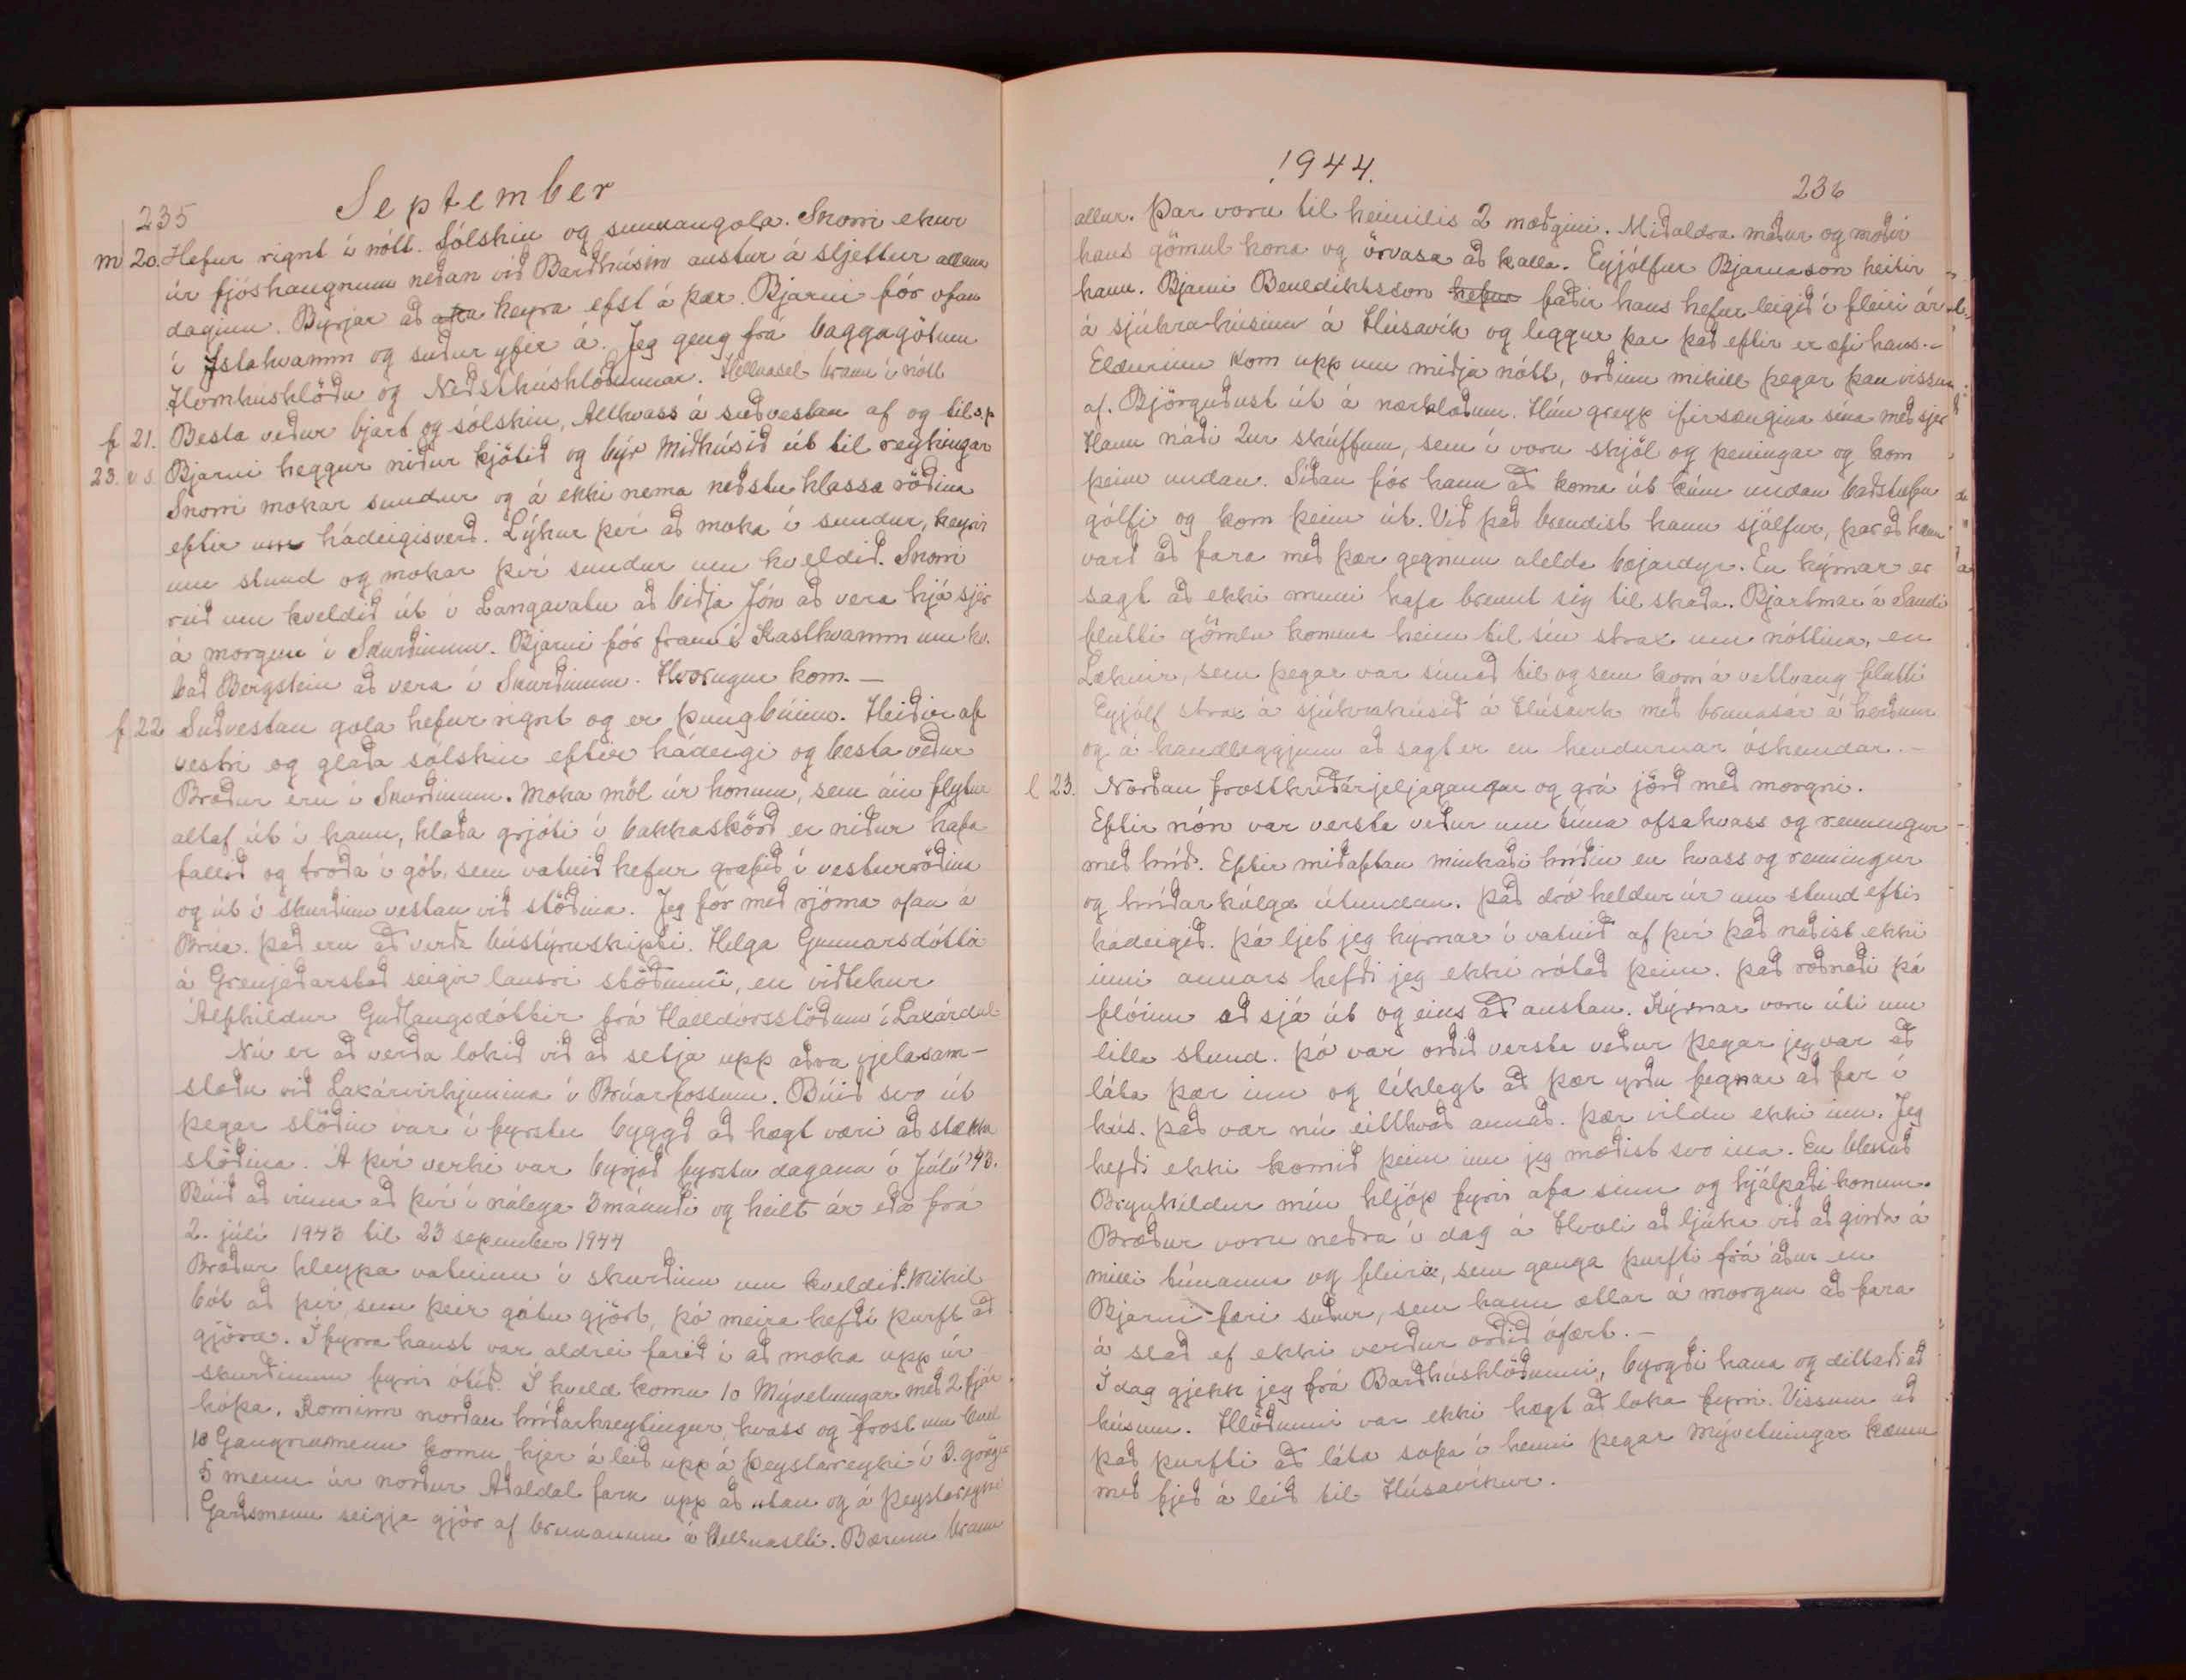 235
September
m 20. Hefur rignt í nótt. Sólskin og sunnangola. Snorri ekur
úr fjóshaugnum neðan við Barðhúsin austur á sljettur allann
daginn. Byrjar að aka keyra efst á þær. Bjarni fór ofan
í Ystahvamm og suður yfir á. Jeg geng frá baggagötum
Hornhúshlöðu og Neðsthúshlöðunnar. Hellnasel brann í nótt
f 21. Besta veður bjart og sólskin, Allhvass á suðvestan af og til s.p
23. v.s. Bjarni heggur niður kjötið og býr Miðhúsið út til reykingar
Snorri mokar sundur og á ekki nema neðstu hlassa röðina
eftir um hádeigisverð. Lýkur því að moka í sundur, keyrir
um stund og mokar því sundur um kveldið. Snorri
reið um kveldið út í Langavatn að biðja Jón að vera hjá sjer
á morgun í Skurðinum. Bjarni fór fram í Kasthvamm um kv.
bað Bergstein að vera í Skurðinum. Hvorugur kom. —
f 22 Suðvestan gola hefur rignt og er þungbúinn. Heiðir af
vestri og glaða sólskin eftir hádeigi og besta veður
Bræður eru í Skurðinum. Moka möl úr honum, sem áin flytur
altaf út í hann, hlaða grjóti í bakkaskörð er niður hafa
fallið og troða í göt, sem vatnið hefur grafið í vesturröðina
og út í skurðinn vestan við stöðina. Jeg fór með rjóma ofan á
Brúa. Það eru að verða bústýruskipti. Helga Gunnarsdóttir
á Grenjaðarstað seigir lausri stöðunni, en viðtekur
Álfhildur Guðlaugsdóttir frá Halldórsstöðum í Laxárdal
Nú er að verða lokið við að setja upp aðra vjelasam-
stæðu við Laxárvirkjunina í Brúarfossum. Búið svo út
þegar stöðin var í fyrstu byggð að hægt væri að stækka
stöðina. Á því verki var byrjað fyrstu dagana í Júlí '43.
Búið að vinna að því í nálega 3 mánuði og heilt ár eða frá
2. júlí 1943 til 23 sepember 1944
Bræður hleypa vatninu í skurðinn um kveldið. Mikil
bót að því, sem þeir gátu gjört, þó meira hefði þurft að
gjöra. Í fyrra haust var aldrei farið í að moka upp úr
skurðinum fyrir ótíð. Í kveld komu 10 Mývetningar með 2 fjár
hópa. Kominn norðan hríðarhreytingur, hvass og frost um kveld
10 Gangnamenn komu hjer á leið upp á Þeystareyki í 3. göngur
5 menn úr norður Aðaldal fara upp að utan og á Þeystareyki
Garðsmenn seigja gjör af brunanum á Hellnaseli. Bærinn brann
1944.
236
allur. Þar voru til heimilis 2 mæðgini. Miðaldra maður og móðir
hans gömul kona og örvasa að kalla. Eyjólfur Bjarnason heitir
hann. Bjarni Benediktsson hefur faðir hans hefur leigið í fleiri ár
á sjúkrahúsinu á Húsavík og liggur þar það eftir er æfi hans. –
Eldurinn kom upp um miðja nótt, orðinn mikill þegar þau vissu
af. Björguðust út á nærklæðum. Hún greyp ifirsængina sína með sjer
Hann náði 2ur skúffum, sem í voru skjöl og peningar og kom
þeim undan. Síðan fór hann að koma út kúm undan baðstofu
gólfi og kom þeim út. Við það brendist hann sjálfur, þar að hann
varð að fara með þær gegnum alelda bæjardyr. En kýrnar er
sagt að ekki muni hafa brennt sig til skaða. Bjartmar á Sandi
flutti gömlu konuna heim til sín strax um nóttina, en
Læknir, sem þegar var símað til og sem kom á vettvang flutti
Eyjólf strax á sjúkrahúsið á Húsavík með brunasár á herðum
og á handleggjum að sagt er en hendurnar óskemdar. –
l 23. Norðan frosthríðarjeljagangur og grá jörð með morgni.
Eftir nón var versta veður um tíma ofsahvass og renningur
með hríð. Eftir miðaftan minkaði hríðin en hvass og renningur
og hríðarkólga útundan. Það dró heldur úr um stund eftir
hádeigið. Þá ljet jeg kýrnar í vatnið af því það náðist ekki
inni annars hefði jeg ekki rótað þeim. Það roðnaði þá
flóinn að sjá út og eins að austan. Kýrnar voru úti um
litla stund. Þó var orðið versta veður þegar jeg var að
láta þær inn og líklegt að þær yrðu fegnar að far í
hús. Það var nú eitthvað annað. Þær vildu ekki inn. Jeg
hefði ekki komið þeim inn jeg mæðist svo ina. En blessuð
Brynhildur mín hljóp fyrir afa sinn og hjálpaði honum.
Bræður voru neðra í dag á Hvoli að ljúka við að girða á
milli túnanna og fleira, sem ganga þurfti frá áður en
Bjarni færi suður, sem hann ætlar á morgun að fara
á stað ef ekki verður orðið ófært. –
Í dag gjekk jeg frá Barðhúshlöðunni, byrgði hana og dittaði að
húsum. Hlöðunni var ekki hægt að loka fyrri. Vissum að
það þurfti að láta sofa í henni þegar Mývetningar kæmu
með fjeð á leið til Húsavíkur.